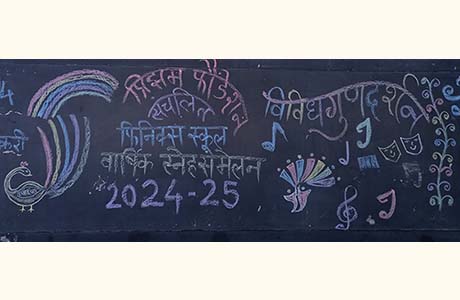 संचलित
फिनिक्स स्कूल
वार्षिक स्नेहसंमेलन
2024-25
विविधगुणदर्शन